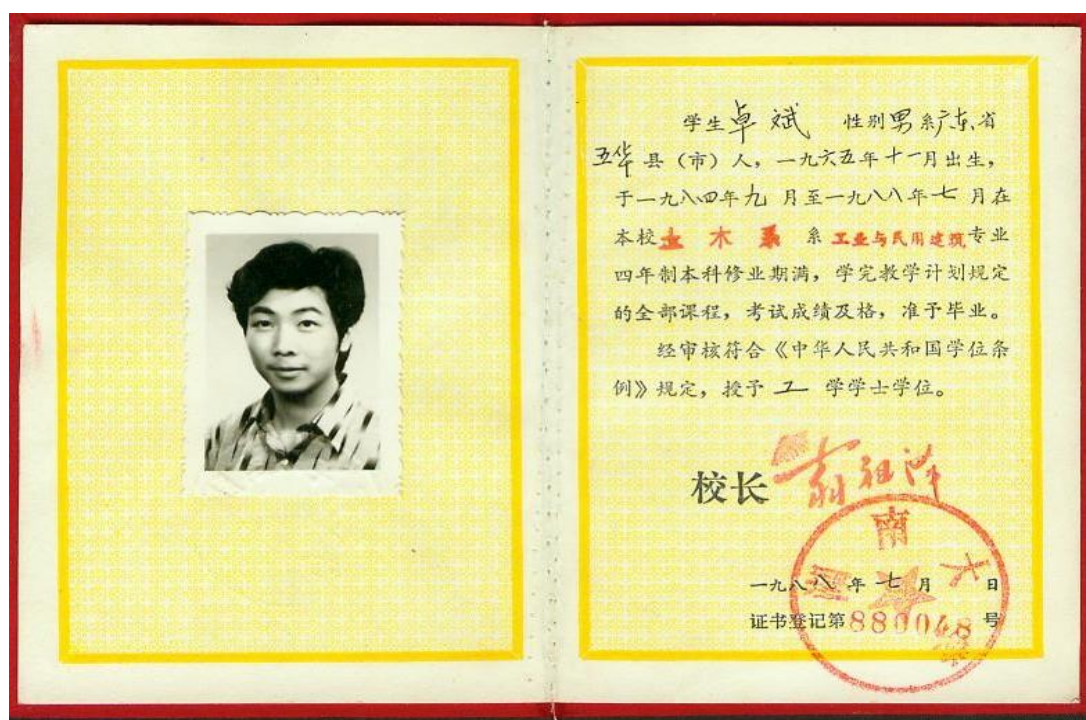 学生卓斌 性别男系广东省
五华县（市）人，一九六五年十一月出生，
于一九八四年九月至一九八八年七月在
本校土木系 系工业与民用建筑专业
四年制本科修业期满，学完教学计划规定
的全部课程，考试成绩及格，准予毕业。
经审核符合《中华人民共和国学位条
例》规定，授予工学学士学位。
校长 翁祖泽
南大
一九八八年七月 日
证书登记第880048号